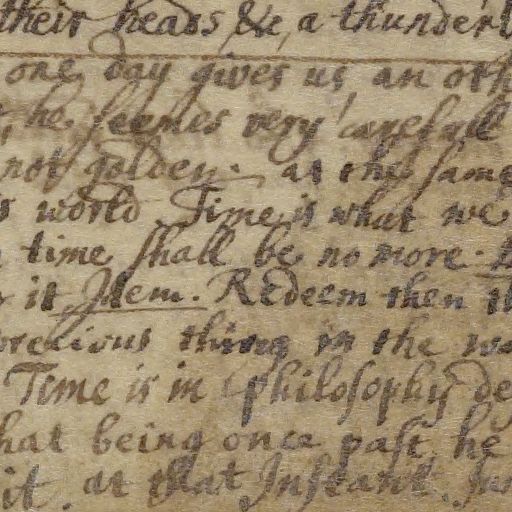 their heads &c, a thunder
one day gives us an oth
he seemes very carefull
not golden. at the same
world Time is what we
time shall be no more.
it Idem. Redeem then th
precious thing in the wo
Time is in philosophy de
hat being once past, he
it. at that Instant.